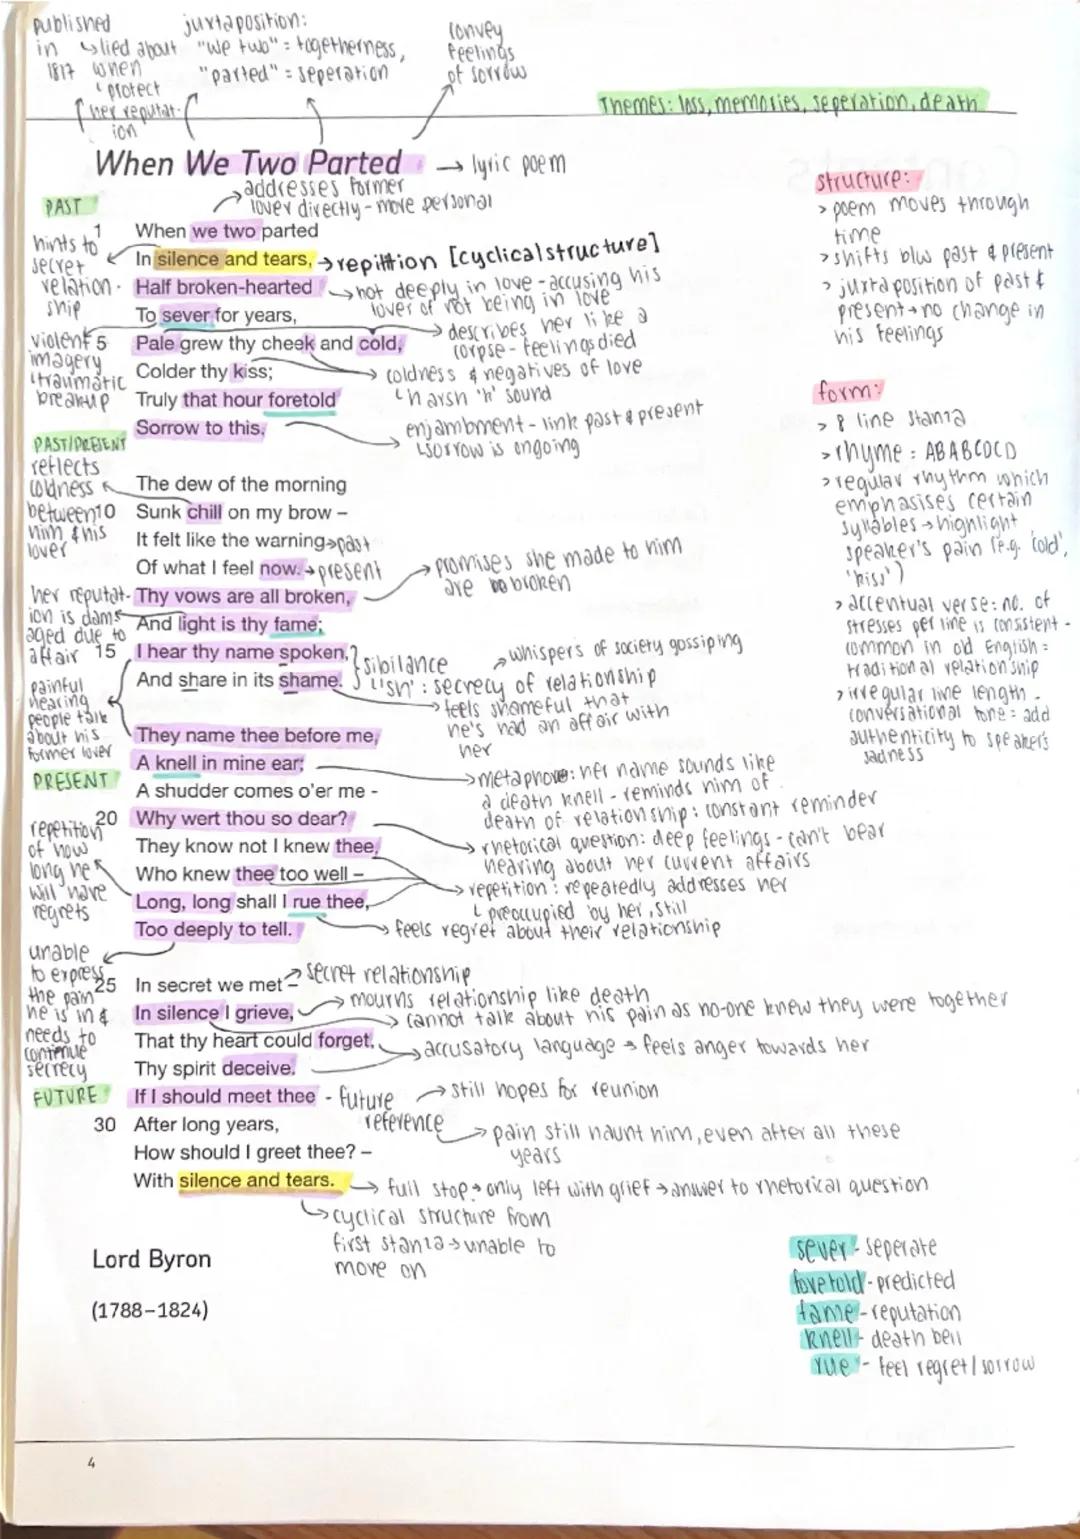 published
in ↳lied about
1817 when
↳protect
her reputat-
ion
juxtaposition:
"we two" = togetherness,
"parted" = seperation
convey
feelings
of sorrow
Themes: loss, memories, seperation, death
When We Two Parted → lyric poem
addresses former
lover directly - more personal
PAST
1 When we two parted
In silence and tears, → repitition [cyclical structure]
Half broken-hearted
To sever for years,
5 Pale grew thy cheek and cold,
Colder thy kiss;
Truly that hour foretold
Sorrow to this.
hints to
secret
relation-
ship
violent
imagery
↳traumatic
breakup
not deeply in love - accusing his
lover of not being in love
describes her like a
corpse - feelings died
coldness & negatives of love
↳harsh 'h' sound
enjambment - link past & present
↳sorrow is ongoing
PAST/PRESENT
reflects
coldness
between
him & his
lover
The dew of the morning
10 Sunk chill on my brow –
It felt like the warning → past
Of what I feel now. → present
Thy vows are all broken,
And light is thy fame;
15 I hear thy name spoken,
And share in its shame.
promises she made to him
are broken
her reputat-
ion is dam-
aged due to
affair
sibilance
↳'sh': secrecy of relationship
whispers of society gossiping
feels shameful that
he's had an affair with
her
painful
hearing
people talk
about his
former lover
PRESENT
They name thee before me,
A knell in mine ear;
A shudder comes o'er me -
20 Why wert thou so dear?
They know not I knew thee,
Who knew thee too well –
Long, long shall I rue thee,
Too deeply to tell.
metaphor: her name sounds like
a death knell - reminds him of
death of relationship: constant reminder
rhetorical question: deep feelings - can't bear
hearing about her current affairs
repetition: repeatedly addresses her
↳preoccupied by her, still
feels regret about their relationship
repetition
of how
long he
will have
regrets
unable
to express
the pain
he is in &
needs to
continue
secrecy
25 In secret we met – secret relationship
In silence I grieve,
That thy heart could forget,
Thy spirit deceive.
mourns relationship like death
cannot talk about his pain as no-one knew they were together
accusatory language → feels anger towards her
FUTURE
If I should meet thee - future
reference
30 After long years,
How should I greet thee? –
With silence and tears.
still hopes for reunion
pain still haunt him, even after all these
years
full stop → only left with grief → answer to rhetorical question
↳cyclical structure from
first stanza → unable to
move on
Lord Byron
(1788–1824)
structure:
> poem moves through
time
> shifts b/w past & present
> juxtaposition of past &
present → no change in
his feelings
form:
> 8 line stanza
> rhyme: ABABCDCD
> regular rhythm which
emphasises certain
syllables → highlight
speaker's pain (e.g. 'cold',
'kiss')
> accentual verse: no. of
stresses per line is consistent -
common in old English =
traditional relationship
> irregular line length -
conversational tone = add
authenticity to speaker's
sadness
sever - seperate
foretold - predicted
fame - reputation
knell - death bell
rue - feel regret / sorrow
4